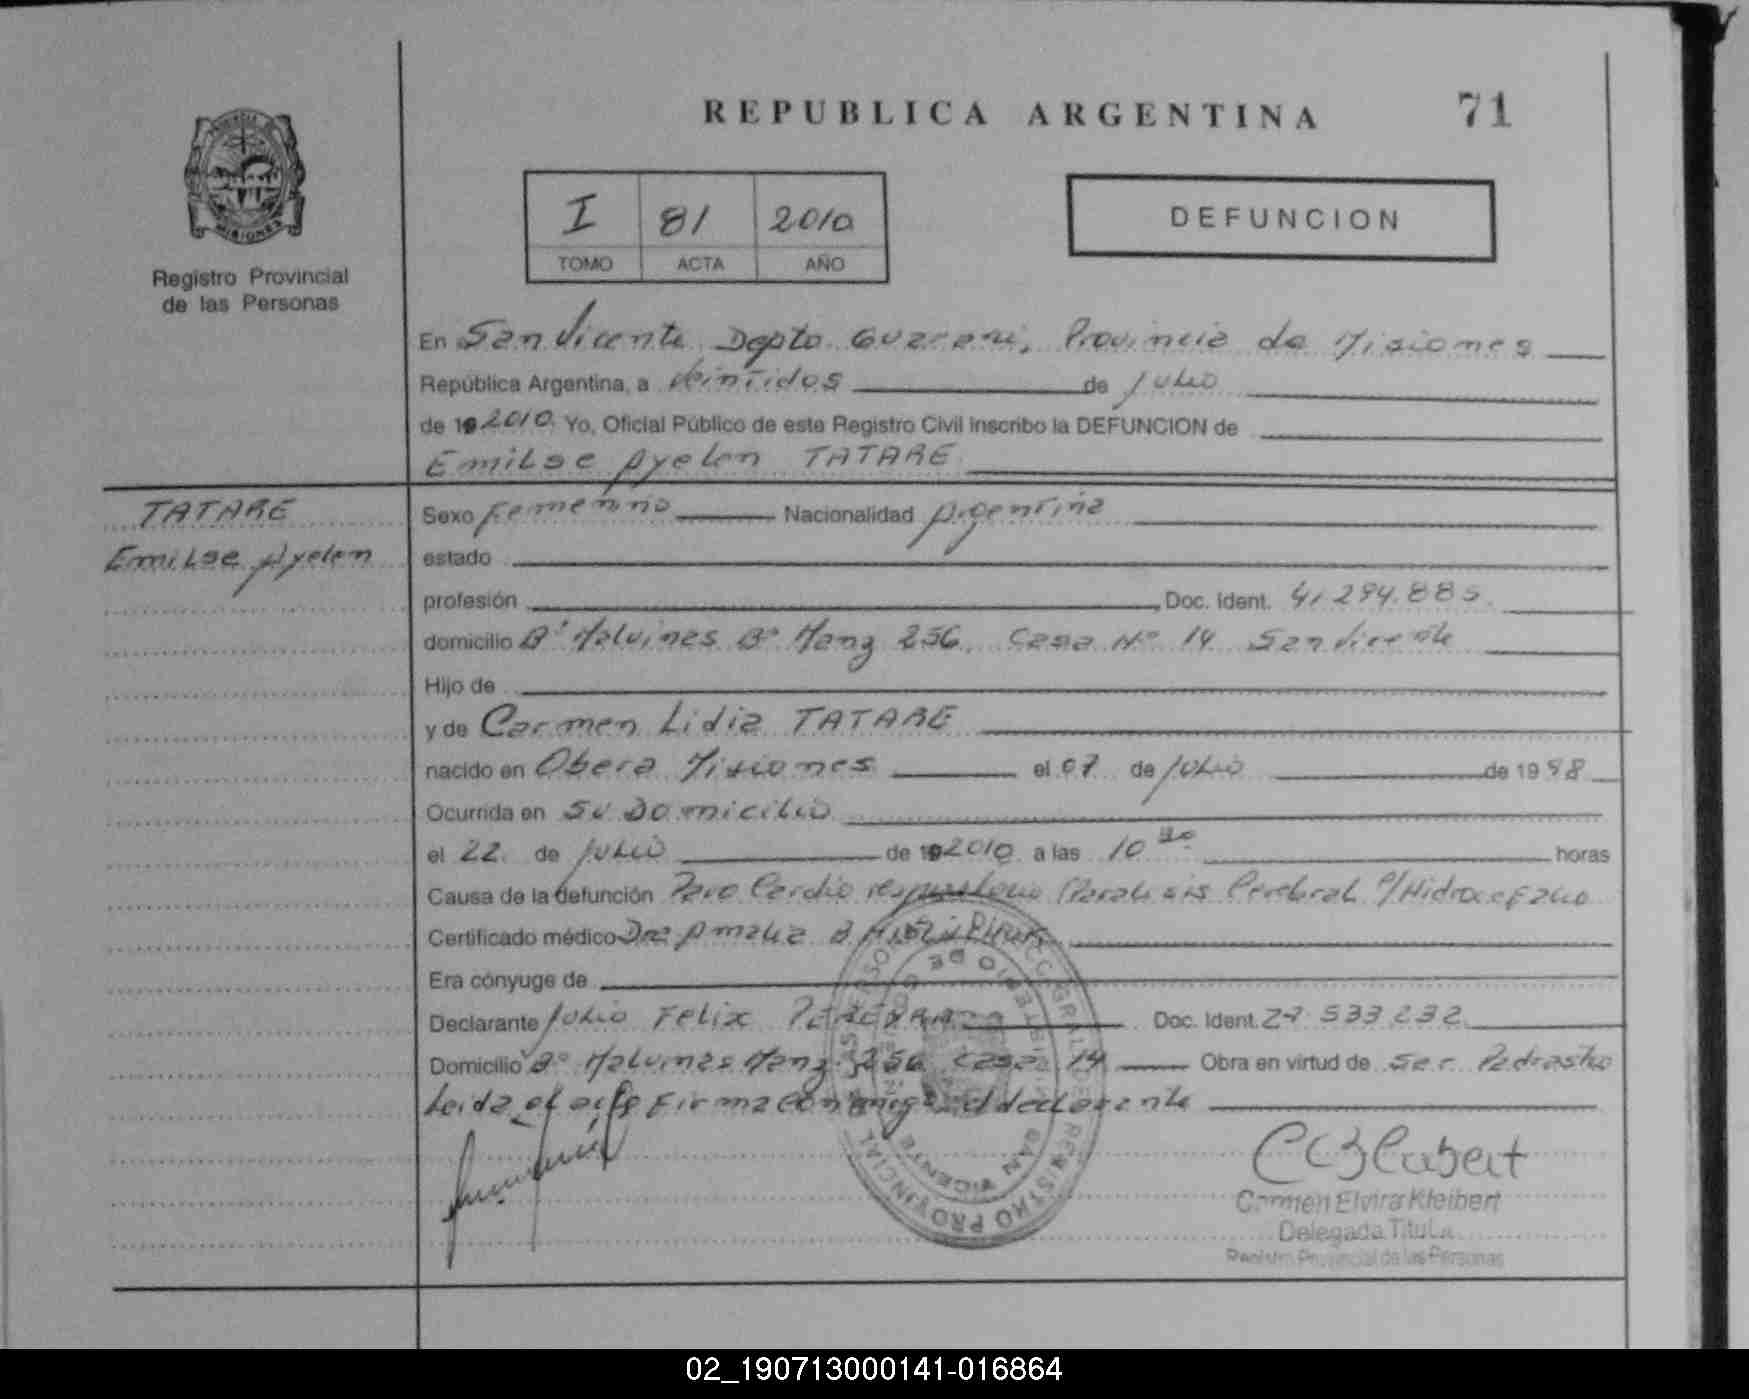 REPUBLICA ARGENTINA 71
MISIONES
Registro Provincial
de las Personas
I 81 2010
TOMO ACTA AÑO
DEFUNCION
En San Vicente Depto Guarani, Provincia de Misiones
República Argentina, a Veintidos de Julio
de 19 2010 Yo, Oficial Público de este Registro Civil inscribo la DEFUNCION de
Emilse Ayelen TATARE
TATARE
Emilse Ayelen
Sexo Femenino Nacionalidad Argentina
estado
profesión Doc. Ident. 41.294.885
domicilio Bº Malvinas Bº Manz 256 Casa Nº 14 San Vicente
Hijo de
y de Carmen Lidia TATARE
nacido en Obera Misiones el 07 de Julio de 1998
Ocurrida en su Domicilio
el 22 de Julio de 19 2010 a las 10 horas
Causa de la defunción Paro Cardio respiratorio Paralisis Cerebral P/Hidrocefalio
Certificado médico Dra Amalia B
Era cónyuge de
Declarante Julio Felix PEREYRA Doc. Ident. 27 533 232
Domicilio Bº Malvinas Manz. 256 Casa 14 Obra en virtud de ser Padrastro
Leida el acta Firma conmigo el declarante
REGISTRO PROVINCIAL
SAN VICENTE
Carmen Elvira Kleibert
Delegada Titular
Registro Provincial de las Personas
02_190713000141-016864